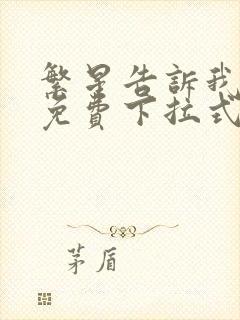 繁星告訴我
免費下拉式
茅盾